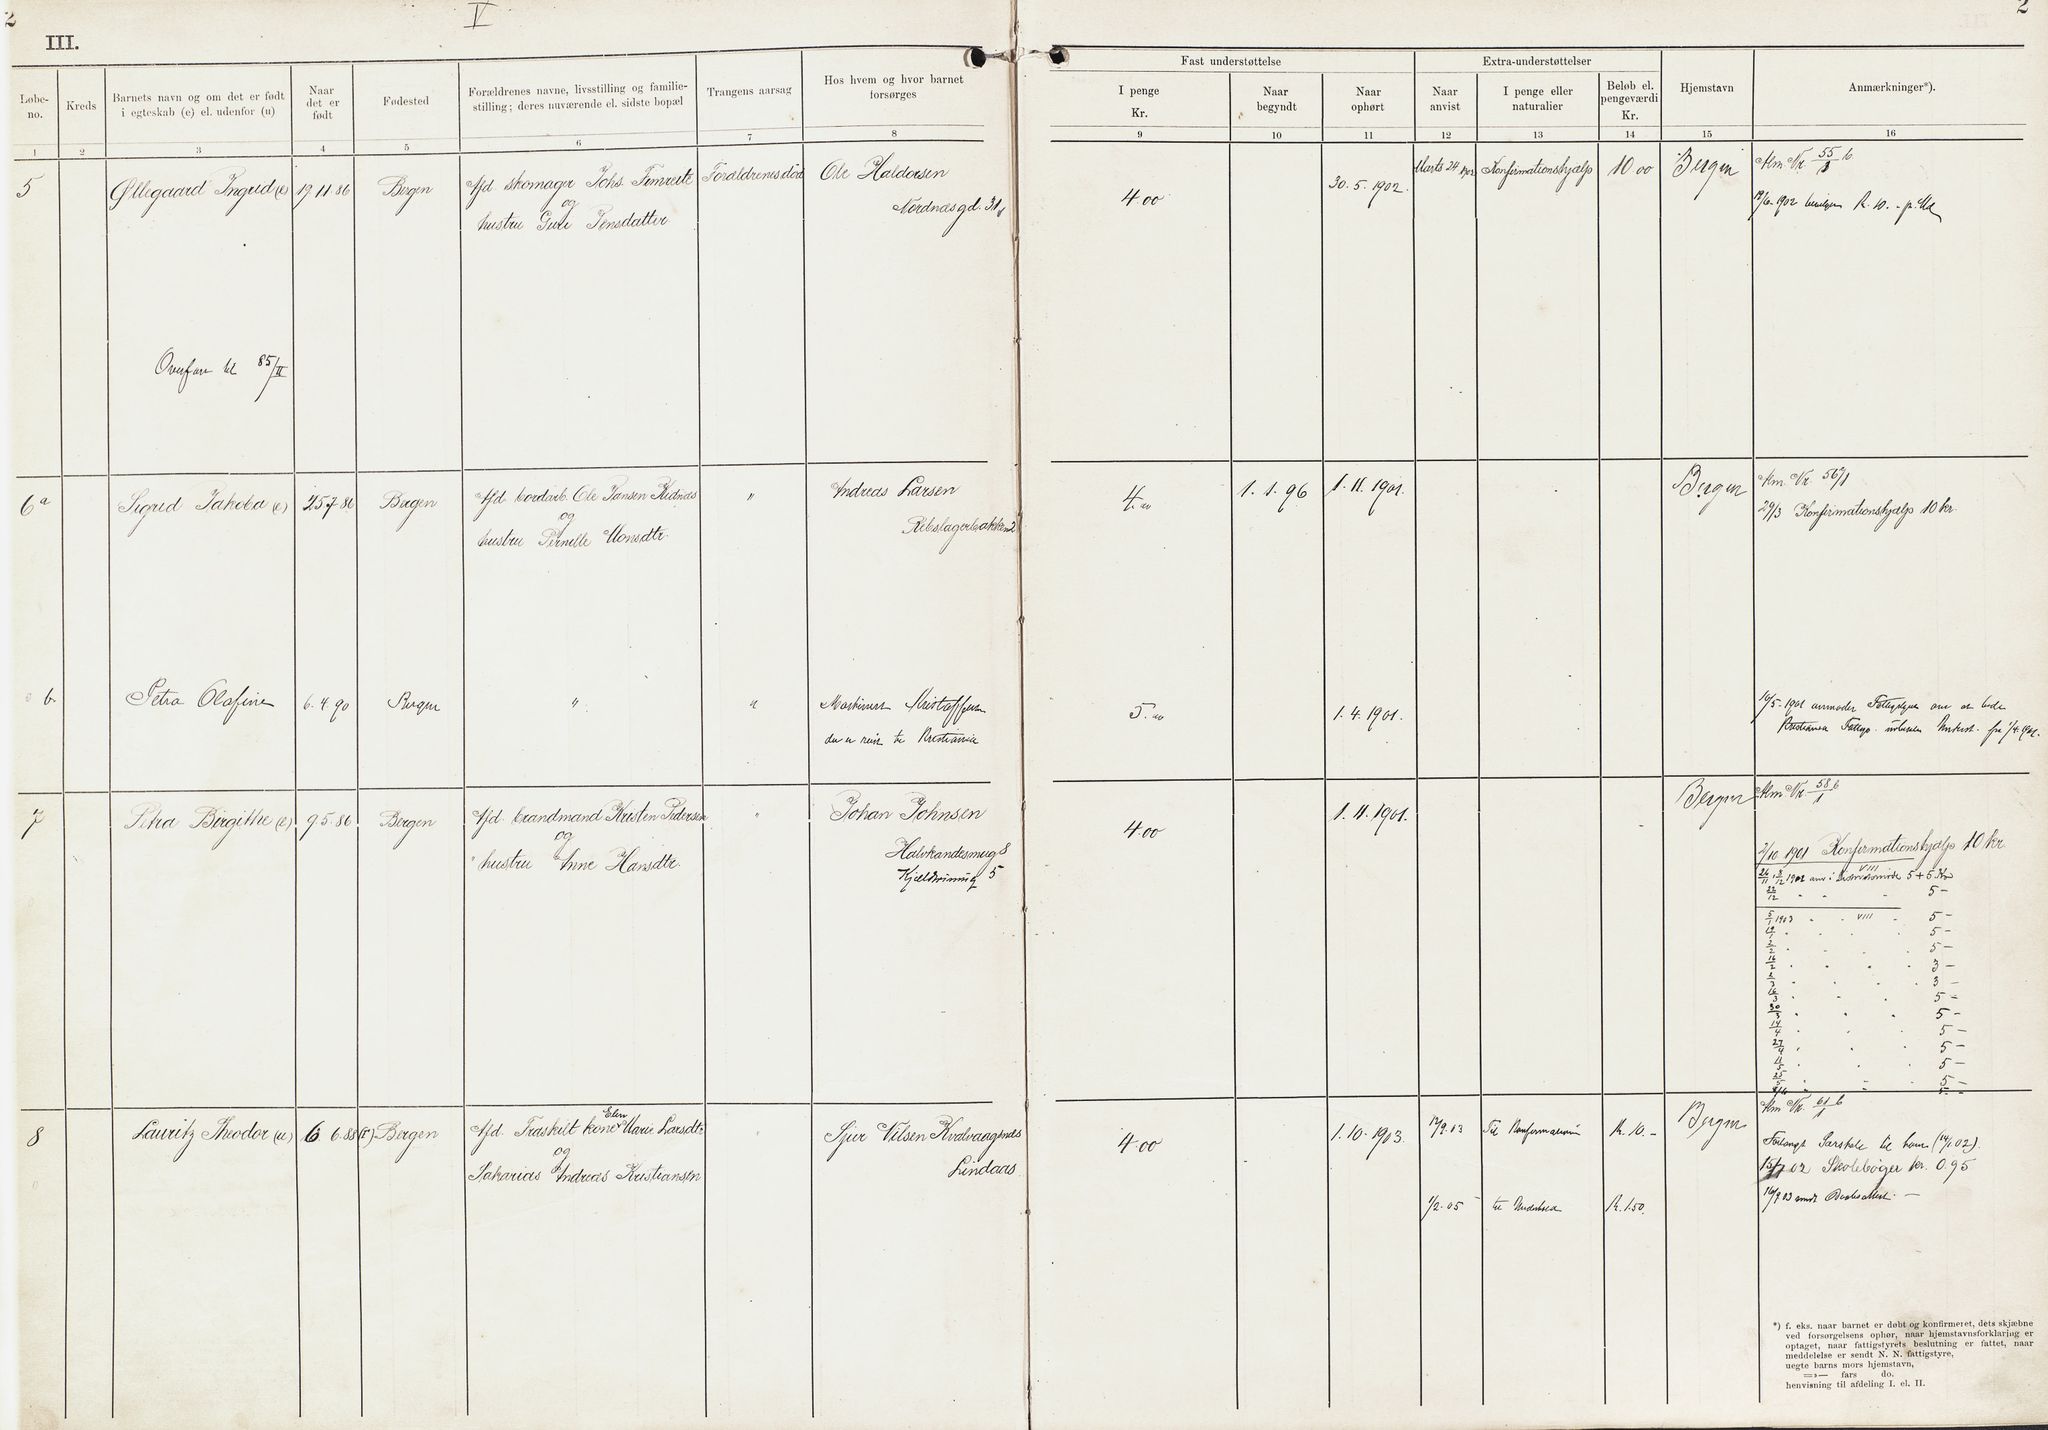 2
V
2
III.
Løbe-no.
Kreds
Barnets navn og om det er født i egteskab (e) el. udenfor (u)
Naar det er født
Fødested
Forældrenes navne, livsstilling og familie-stilling; deres nuværende el. sidste bopæl
Trangens aarsag
Hos hvem og hvor barnet forsørges
Fast understøttelse
I penge Kr.
Naar begyndt
Naar ophørt
Extra-understøttelser
Naar anvist
I penge eller naturalier
Beløb el. pengeværdi Kr.
Hjemstavn
Anmærkninger*).
1 2 3 4 5 6 7 8 9 10 11 12 13 14 15 16
5 Øllegaard Ingrid (e) 19.11.86 Bergen Afd. skomager Johs. Fimreite Forældrenes død Ole Haldorsen 4.00 30.5.1902. Marts 24 1902 Konfirmationshjælp 10 00 Bergen Alm Nr. 55/1 b
og Nordnæsgd. 31
hustru Guri Jensdatter
12/6 1902 bevilges K. 10. - pr. Md
Overført til 85/II
6a Sigrid Jakoba (e) 25.7.86 Bergen Afd. bordarb. Ole Jansen Kidnæs " Andreas Larsen 4.00 1.1.96 1.11.1901. Bergen Alm. Nr. 56/1
og Rebslagerbakken 2 29/3 Konfirmationshjælp 10 kr.
hustru Pernille Monsdtr.
b. Petra Olafine 6.4.90 Bergen " " Maskinist Kristoffersen 5.00 1.4.1901.
der er reist til Kristiania
16/5-1901 anmodes Fattigstyret om at lade
Kristiania Fattigv. udbetale Underst. fra 1/4 1901.
7 Petra Birgithe (e) 9.5.86 Bergen Afd. brandmand Kristen Pedersen " Johan Johnsen 4.00 1.11.1901. Bergen Alm Nr. 58/1 b
og Halvkandesmug 8
hustru Anne Hansdtr. 5
2/10 1901 Konfirmationshjælp 10 kr.
26/11, 8/12 1902 anv. i VIII 5 + 5 Kr
22/12 " " " 5 -
5/1 1903 " " VIII " 5 -
19/1 " " " 5 -
2/2 " " " 5 -
16/2 " " " 3 -
2/3 " " " 3 -
16/3 " " " 5 -
30/3 " " " 5 -
14/4 " " " 5 -
27/4 " " " 5 -
11/5 " " " 5 -
25/5 " " " 5 -
8 Lauritz Theodor (u) 6 6.88 Bergen Afd. Fraskilt kone Elen Marie Larsdtr. Sjur Nilsen Kvalvaagnæs 4.00 1.10.1903. 17/9.03 Til Konfirmation Kr. 10.- Bergen Alm Nr. 61/1 b
og Lindaas.
Sakarias Andreas Kristiansen
Forlangt Særskole til ham (14/1 02).
15/7 02 Skolebøger kr. 0.95
1/2.05 til Kr. 1.50. 16/9 03 sendt Daabsattest. -
*) f. eks. naar barnet er døbt og konfirmeret, dets skjæbne
ved forsørgelsens ophør, naar hjemstavnsforklaring er
optaget, naar fattigstyrets beslutning er fattet, naar
meddelelse er sendt N. N. fattigstyre,
uegte barns mors hjemstavn,
—»— fars do.
henvisning til afdeling I. el. II.